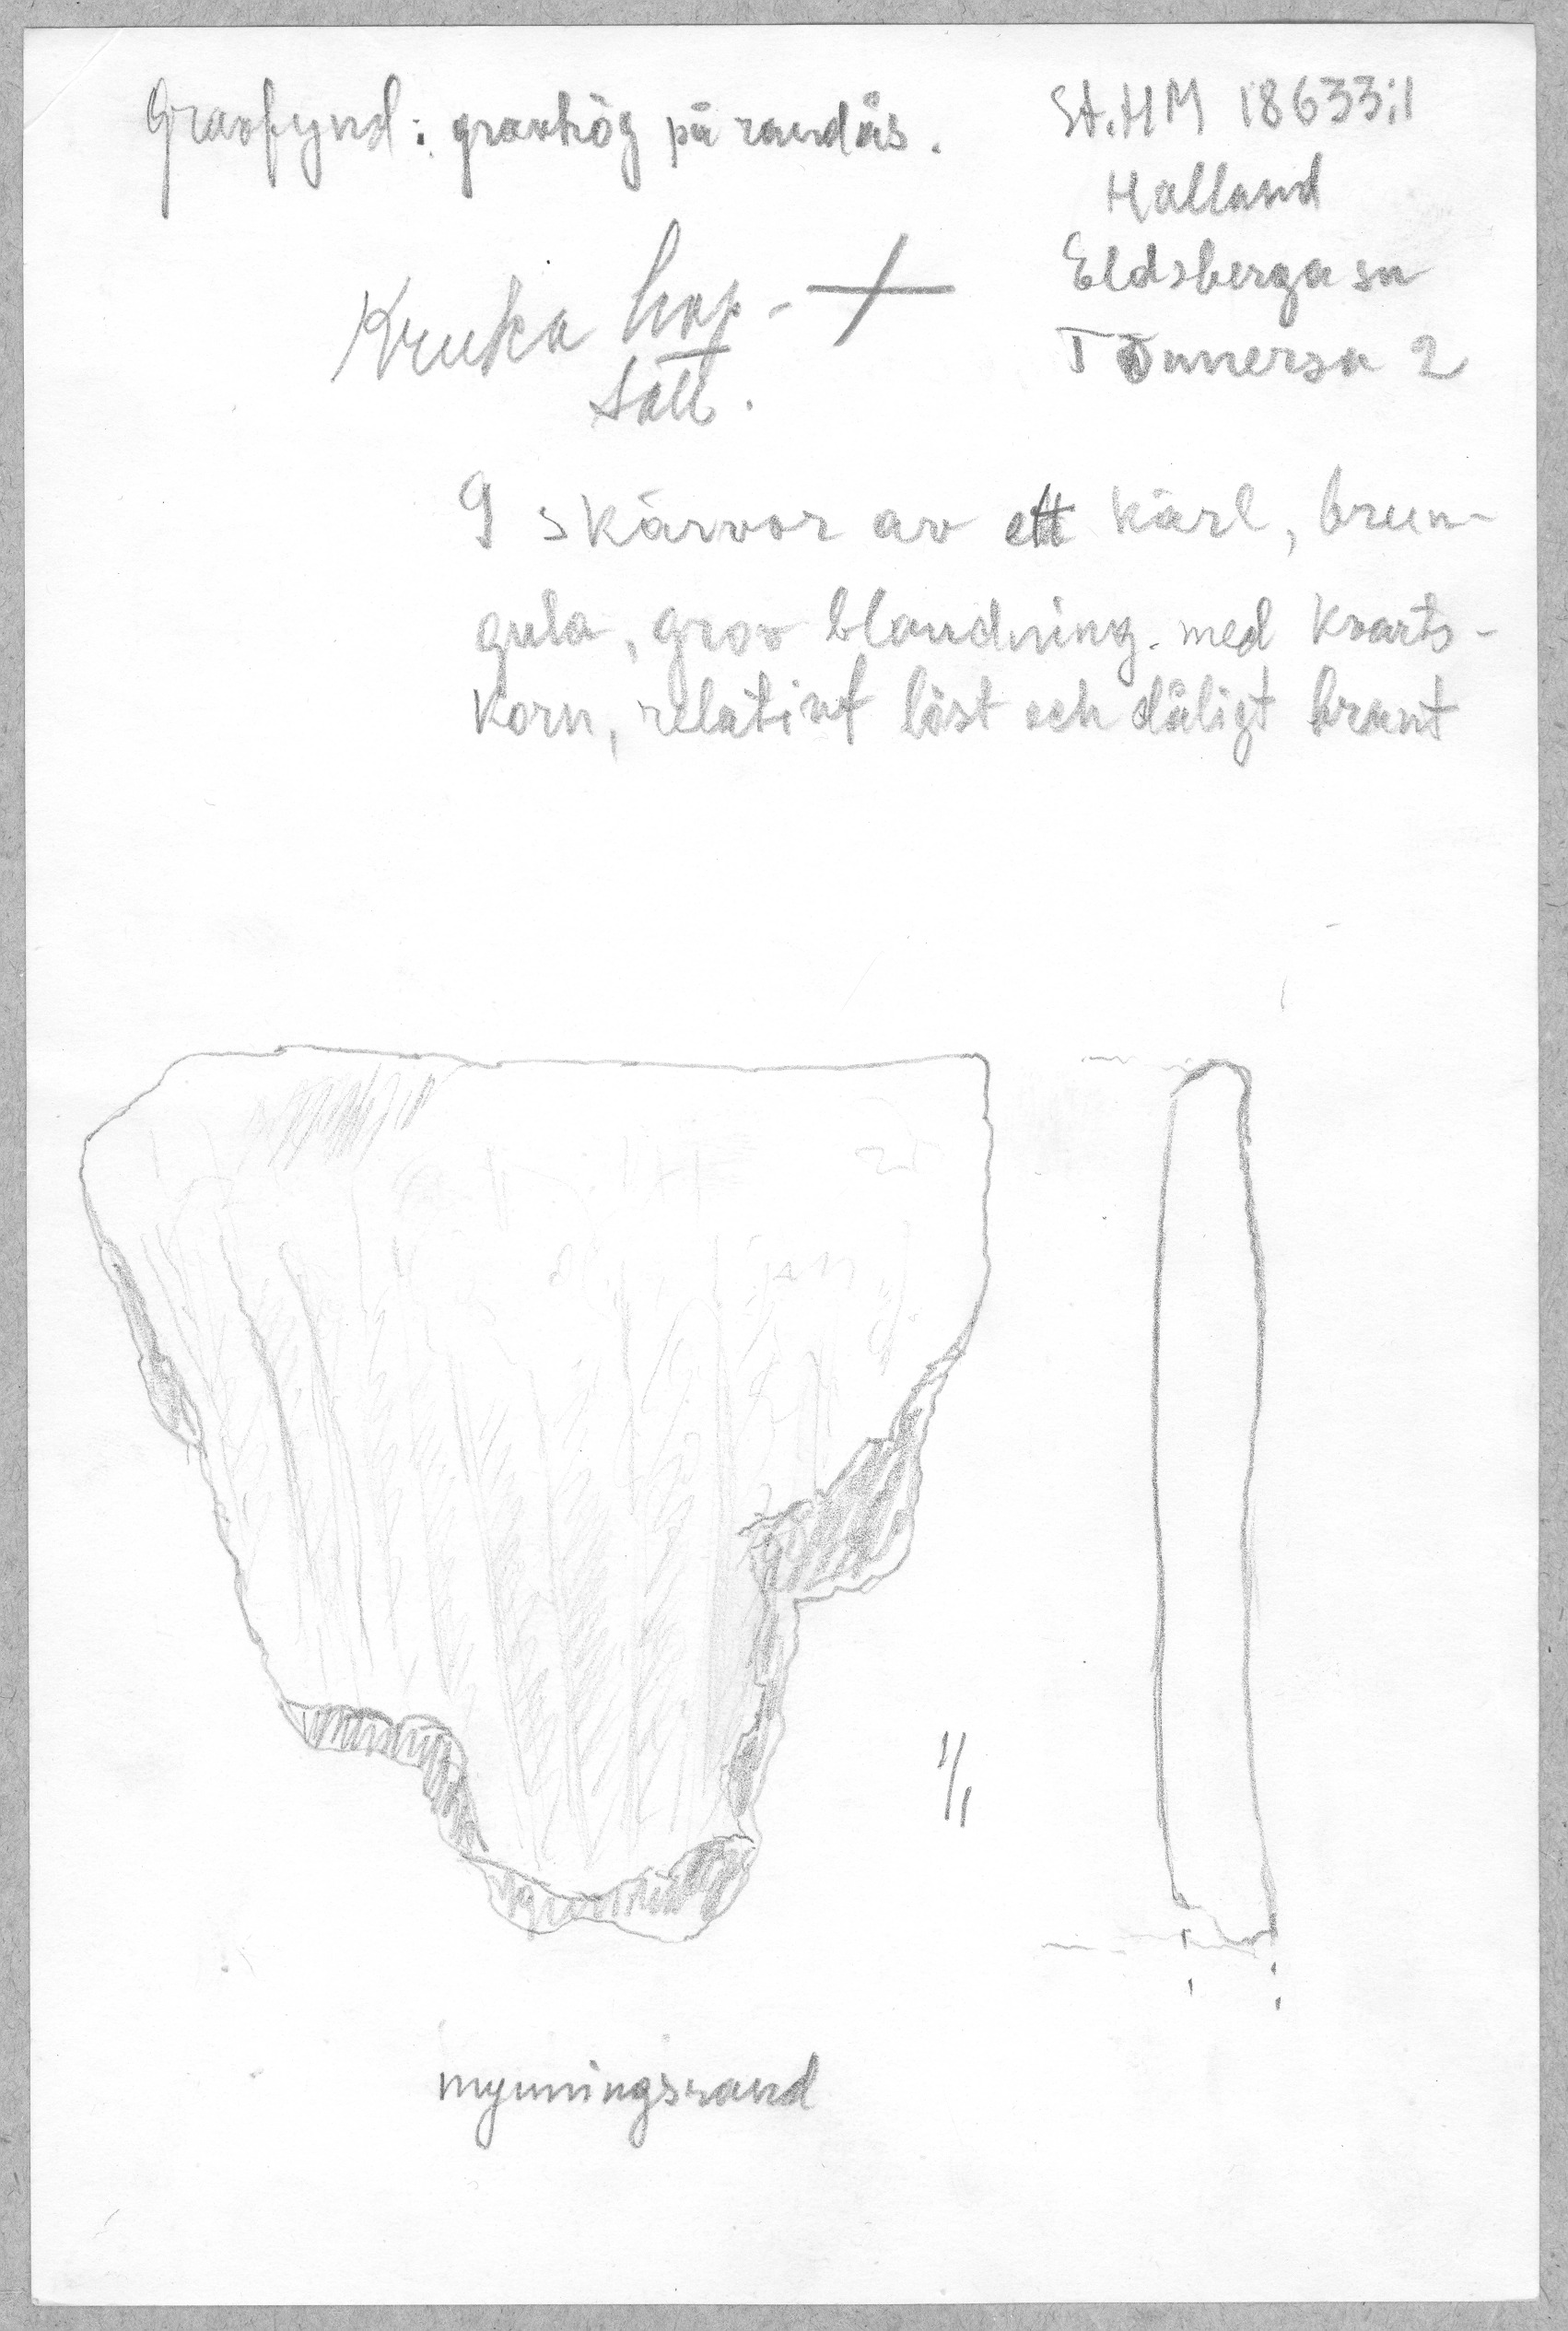 Gravfynd: gravhög på randås.
St.HM 18633:1
Halland
Eldsberga sn
Tönnersa 2
Kruka hop-
satt.
9 skärvor av ett kärl, brun-
gula, grov blandning med kvarts-
korn, relativt löst och dåligt bränt
1/1
mynningsrand